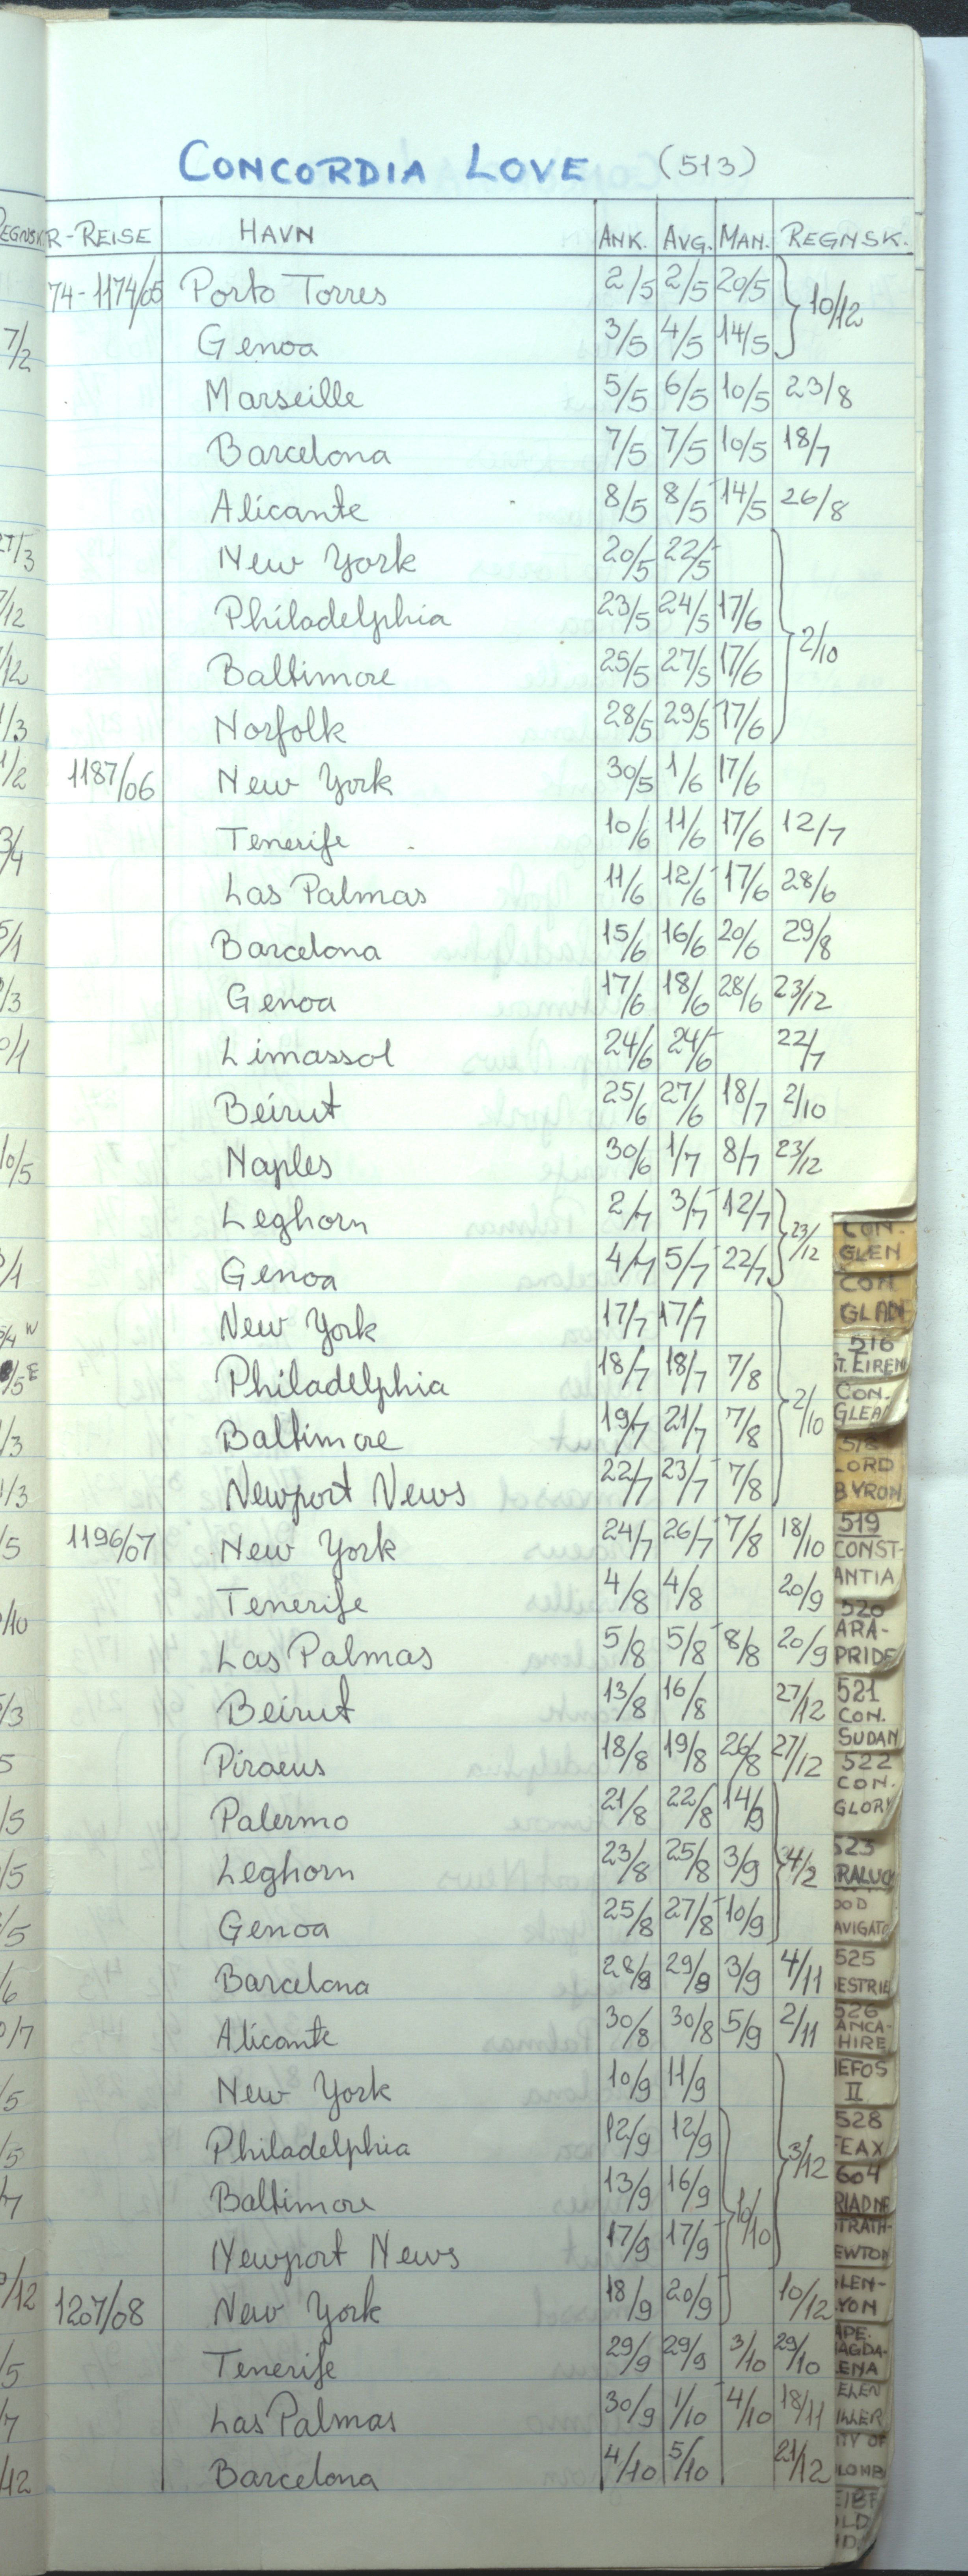 CONCORDIA LOVE (513)
R-REISE HAVN ANK. AVG. MAN. REGNSK.
74-1174/05 Porto Torres 2/5 2/5 20/5 } 10/12
Genoa 3/5 4/5 14/5
Marseille 5/5 6/5 10/5 23/8
Barcelona 7/5 7/5 10/5 18/7
Alicante 8/5 8/5 14/5 26/8
New York 20/5 22/5
Philadelphia 23/5 24/5 17/6 } 2/10
Baltimore 25/5 27/5 17/6
Norfolk 28/5 29/5 17/6
1187/06 New York 30/5 1/6 17/6
Tenerife 10/6 11/6 17/6 12/7
Las Palmas 11/6 12/6 17/6 28/6
Barcelona 15/6 16/6 20/6 29/8
Genoa 17/6 18/6 28/6 23/12
Limassol 24/6 24/6 22/7
Beirut 25/6 27/6 18/7 2/10
Naples 30/6 1/7 8/7 23/12
Leghorn 2/7 3/7 12/7 } 23/12
Genoa 4/7 5/7 22/7
New York 17/7 17/7
Philadelphia 18/7 18/7 7/8 } 2/10
Baltimore 19/7 21/7 7/8
Newport News 22/7 23/7 7/8
1196/07 New York 24/7 26/7 7/8 18/10
Tenerife 4/8 4/8 20/9
Las Palmas 5/8 5/8 8/8 20/9
Beirut 13/8 16/8 27/12
Piraeus 18/8 19/8 26/8 27/12
Palermo 21/8 22/8 14/9
Leghorn 23/8 25/8 3/9 } 4/2
Genoa 25/8 27/8 10/9
Barcelona 28/8 29/8 3/9 4/11
Alicante 30/8 30/8 5/9 2/11
New York 10/9 11/9
Philadelphia 12/9 12/9 } 3/12
Baltimore 13/9 16/9 } 10/10
Newport News 17/9 17/9
1207/08 New York 18/9 20/9 10/12
Tenerife 29/9 29/9 3/10 29/10
Las Palmas 30/9 1/10 4/10 18/11
Barcelona 4/10 5/10 21/12
CON.
GLEN
CON
GLAD
516
ST. EIREN
CON.
GLEA
518
LORD
BYRON
519
CONST-
ANTIA
520
ARA-
PRIDE
521
CON.
SUDAN
522
CON.
GLORY
523
RALUC
OOD
AVIGATO
525
ESTRIE
526
ANCA-
HIRE
EFOS
II
528
FEAX
604
RIADNE
TRATH-
EWTON
LEN-
YON
APE.
AGDA-
ENA
ELEN
ILLER
ITY OF
LOMB